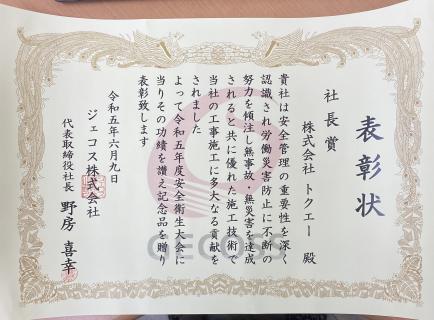 表彰状
社長賞
株式会社 トクエー 殿
貴社は安全管理の重要性を深く
認識され労働災害防止に不断の
努力を傾注し無事故・無災害を達成
されると共に優れた施工技術で
当社の工事施工に多大なる貢献を
されました
よって令和五年度安全衛生大会に
当りその功績を讃え記念品を贈り
表彰致します
令和五年六月九日
ジェコス株式会社
代表取締役社長 野房 喜幸
GECOSS